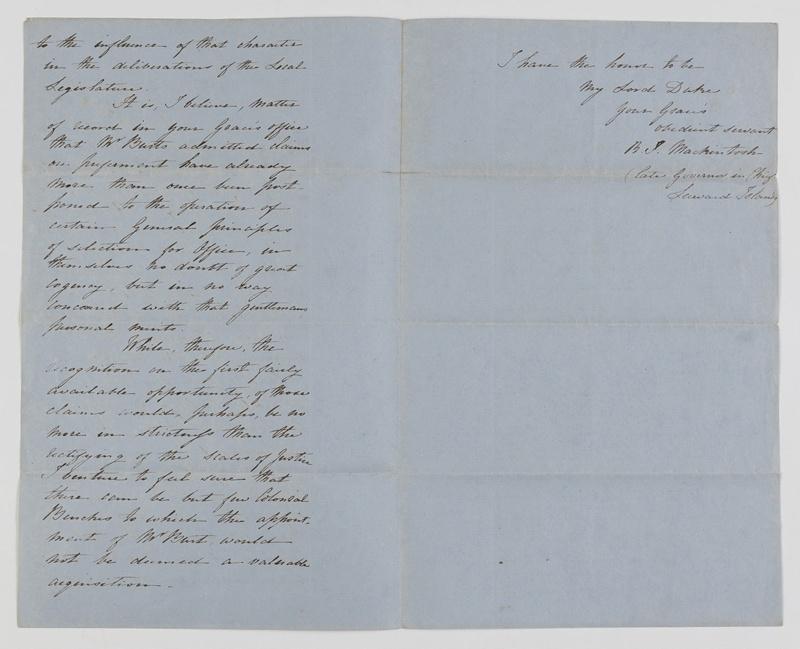 to the influence of that character
in the deliberations of the Local
Legislature.
It is, I believe, matter
of record in your Grace's office
that Mr Burt's admitted claims
on preferment have already
more than once been post
poned to the operation of
certain General Principles
of selection for Office, in
themselves no doubt of great
cogency, but in no way
concerned with that gentlemans
personal merits.
While, therefore, the
recognition on the first fairly
available opportunity, of those
claims would, perhaps, be no
more in strictness than the
rectifying of the scales of Justice
I venture to feel sure that
there can be but few Colonial
Benches to which the appoint-
ment of Mr Burt would
not be deemed a valuable
acquisition.
I have the honor to be
My Lord Duke
Your Grace's
obedient servant
R. J. Mackintosh
(late Governor in Chief
Leeward Islands